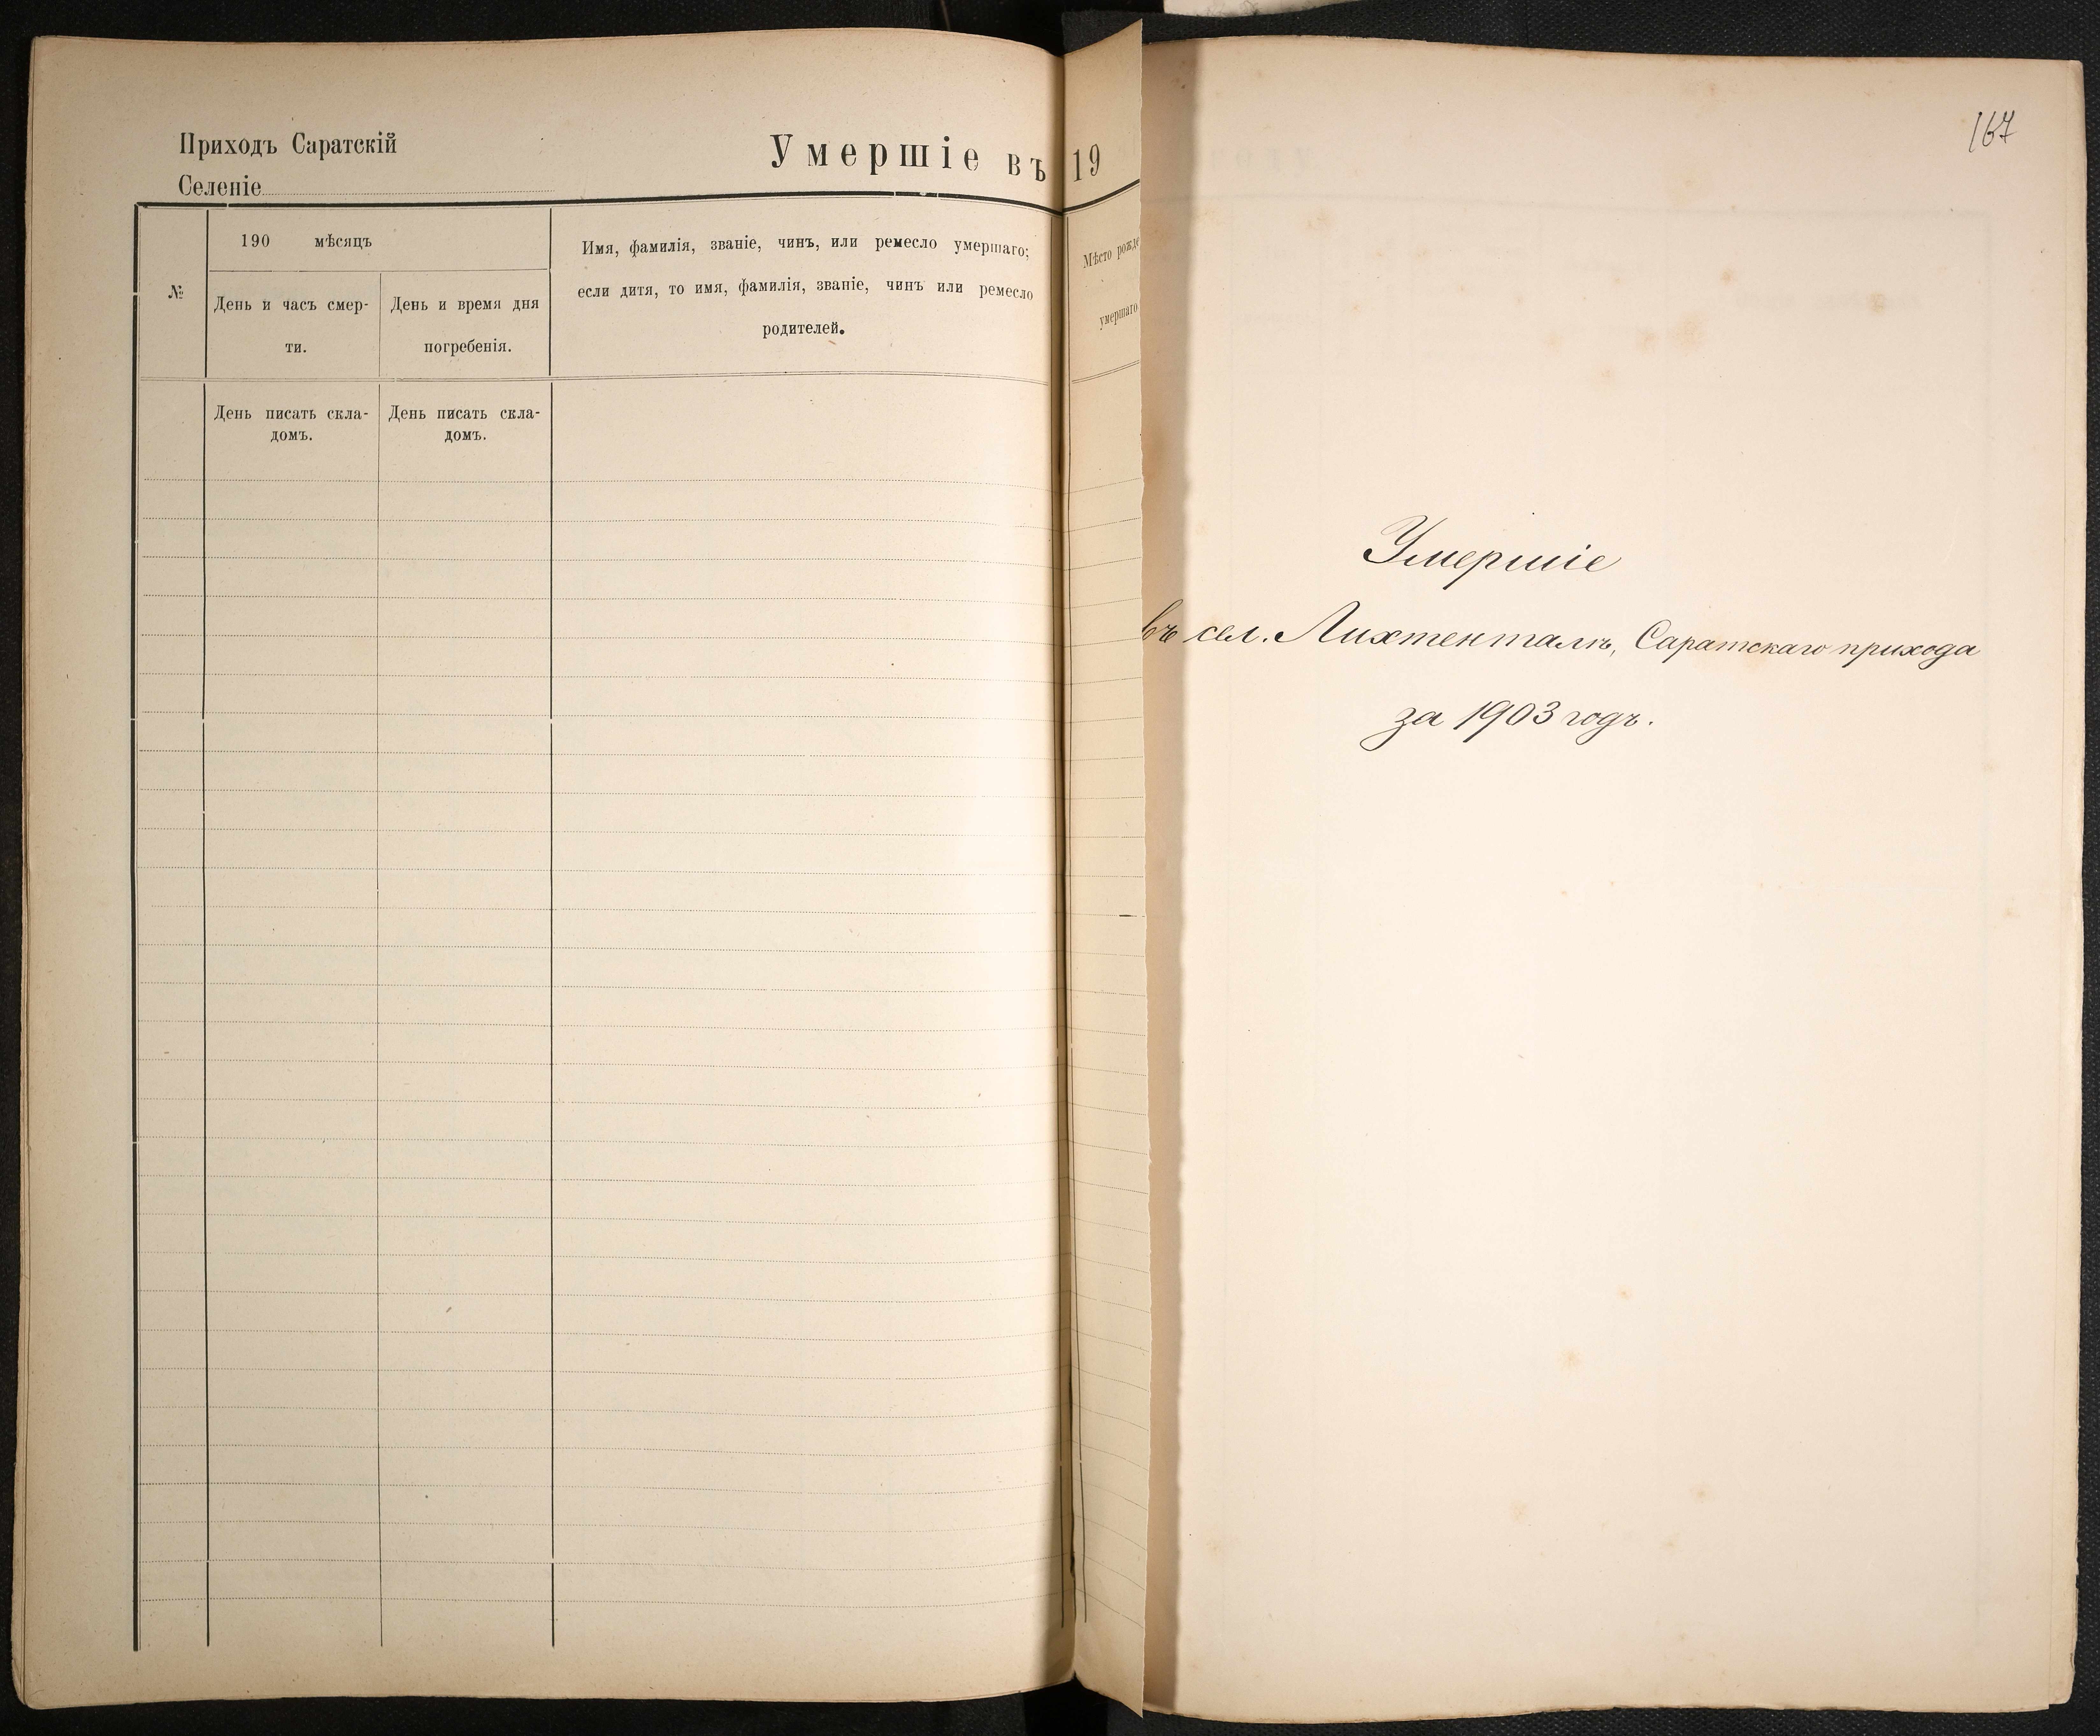 Приходъ Саратскій
Селеніе
Умершіе въ 19
№
190 мѣсяцъ
День и часъ смер-
ти.
День и время дня
погребенія.
Имя, фамилія, званіе, чинъ, или ремесло умершаго;
если дитя, то имя, фамилія, званіе, чинъ или ремесло
родителей.
Мѣсто рожде
умершаго
День писать скла-
домъ.
День писать скла-
домъ.
167
Умершіе
въ сел. Лихтенталь, Саратскаго прихода
за 1903 годъ.